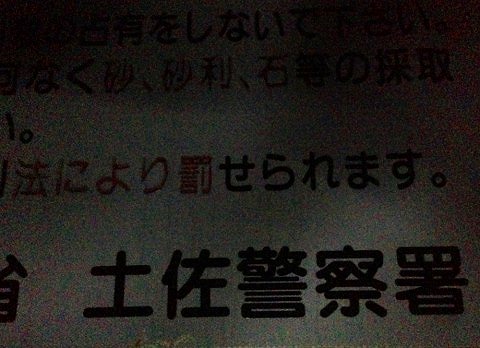 占有をしないで下さい。
可なく砂、砂利、石等の採取
い。
法により罰せられます。
省 土佐警察署